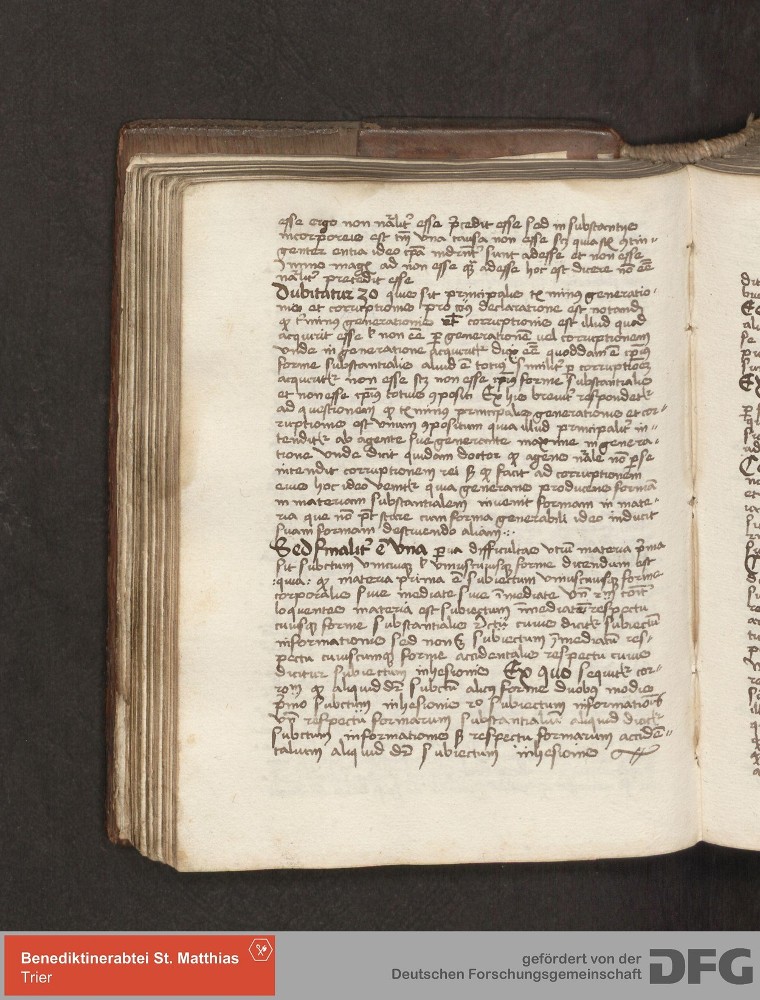 esse ergo non nãlitʼ esse p̃cedit esse sed in substantijs
incorporeis est tm̃ una causa non esse scz quia
gentes entia ideo ip̃a indr̃nt sunt adesse et non esse
ymmo magis ad non esse qʒ adesse hoc est dicere nõ eẽ
nãlitʼ precedit esse
Dubitatur 2o quis sit principalis tʼminus generatio-
nis et corruptionis pro cuiʼ declaratione est notandʼ
qʼ tʼminus generationis uel corruptionis est illud quod
acquirit esse l non eẽ per generationẽ uel corruptionem
unde in generatione acquiritʼ duplex eẽ quoddam ẽ ip̃iʼ
forme substantialis aliud ẽ totiʼ Similitʼ p corruptionẽ
acquiritʼ non esse scz non esse ip̃iʼ forme substantialis
et non esse ip̃iʼ totius ꝯpositi Ex hijs breuitʼ respondetʼ
ad questionem qʼ tʼminus principalis generationis et cor-
ruptionis est unum ꝯpositum quia illud principalitʼ in-
tenditʼ ab agente siue generante maxime in genera-
tione unde dicit quidam doctor qʼ agens nãle nõ p se
intendit corruptionem rei sʒ qʼ facit ad corruptionem
eius hoc ideo uenitʼ quia generans producens formã
in materiam substantialem inuenit formam in mate-
ria que nõ pt̃ stare cum forma generabili ideo inducit
suam formam destruendo aliam
Sed finalitʼ ẽ una parua difficultas utrũ materia p̃ma
sit subiectum uniuscuiusqʒ forme dicendum est
quia qʼ materia prima ẽ subiectum uniuscuiusqʒ forme
corporalis siue mediate siue ĩmediate uñ
loquentes materia est subiectum inmediatũ respectu
cuiusqʒ forme substantialis cuius dicitʼ subiectũ
informationis sed non ẽ subiectum ĩmediatũ res-
pectu cuiuscumqʒ forme accidentalis respectu cuius
dicitur subiectum inhesionis Ex quo sequitʼ cor-
rẽm qʼ aliquid dʼr subctũ alicʼ forme duobʼ modis
p̃mo subctum inhesionis 2o subiectum informationis
uñ respectu formarum substantialiũ aliquid dicitʼ
subctum informationis sʒ respectu formarum accidẽ-
talium aliquid dʼr subiectum inhesionis
Benediktinerabtei St. Matthias
Trier
gefördert von der
Deutschen Forschungsgemeinschaft
DFG